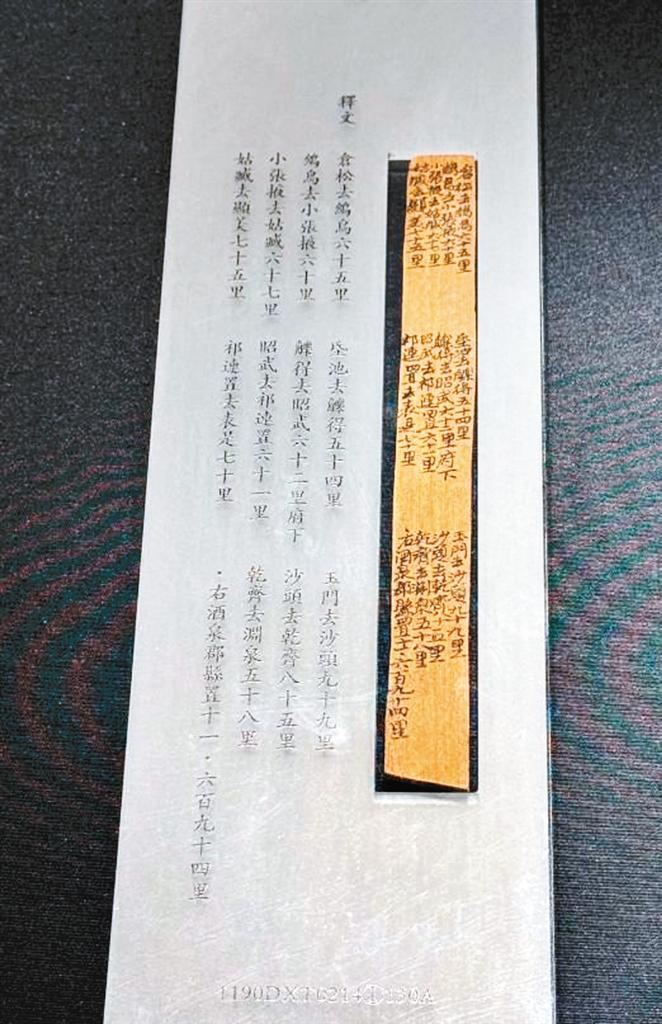 釋文
倉松去鳥六十五里
鳥去小張掖六十里
小張掖去姑臧六十七里
姑臧去顯美七十五里
垐池去觻得五十四里
觻得去昭武六十二里府下
昭武去祁連置六十一里
祁連置去表是七十里
玉門去沙頭九十九里
沙頭去乾齊八十五里
乾齊去淵泉五十八里
·右酒泉郡縣置十一·六百九十四里
倉松去鳥六十五里
鳥去小張掖六十里
小張掖去姑臧六十七里
姑臧去顯美七十五里
垐池去觻得五十四里
觻得去昭武六十二里府下
昭武去祁連置六十一里
祁連置去表是七十里
玉門去沙頭九十九里
沙頭去乾齊八十五里
乾齊去淵泉五十八里
右酒泉郡縣置十一六百九十四里
II90DXT0214①130A